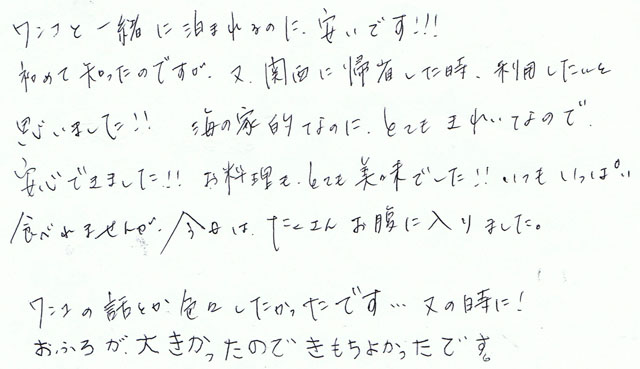 ワンコと一緒に泊まれるのに、安いです!!!
初めて知ったのですが、又、関西に帰省した時、利用したいと
思いました!! 海の家的なのに、とてもきれいなので、
安心できました!! お料理も、とても美味でした!! いつもいっぱい
食べれませんが、今日は、たくさんお腹に入りました。
ワンコの話とか色々したかったです… 又の時に!
おふろが大きかったのできもちよかったです。